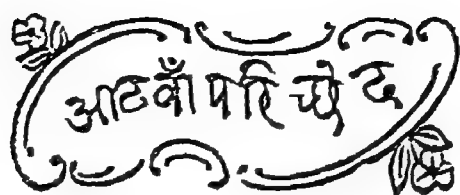 आठवाँ परिच्छेद